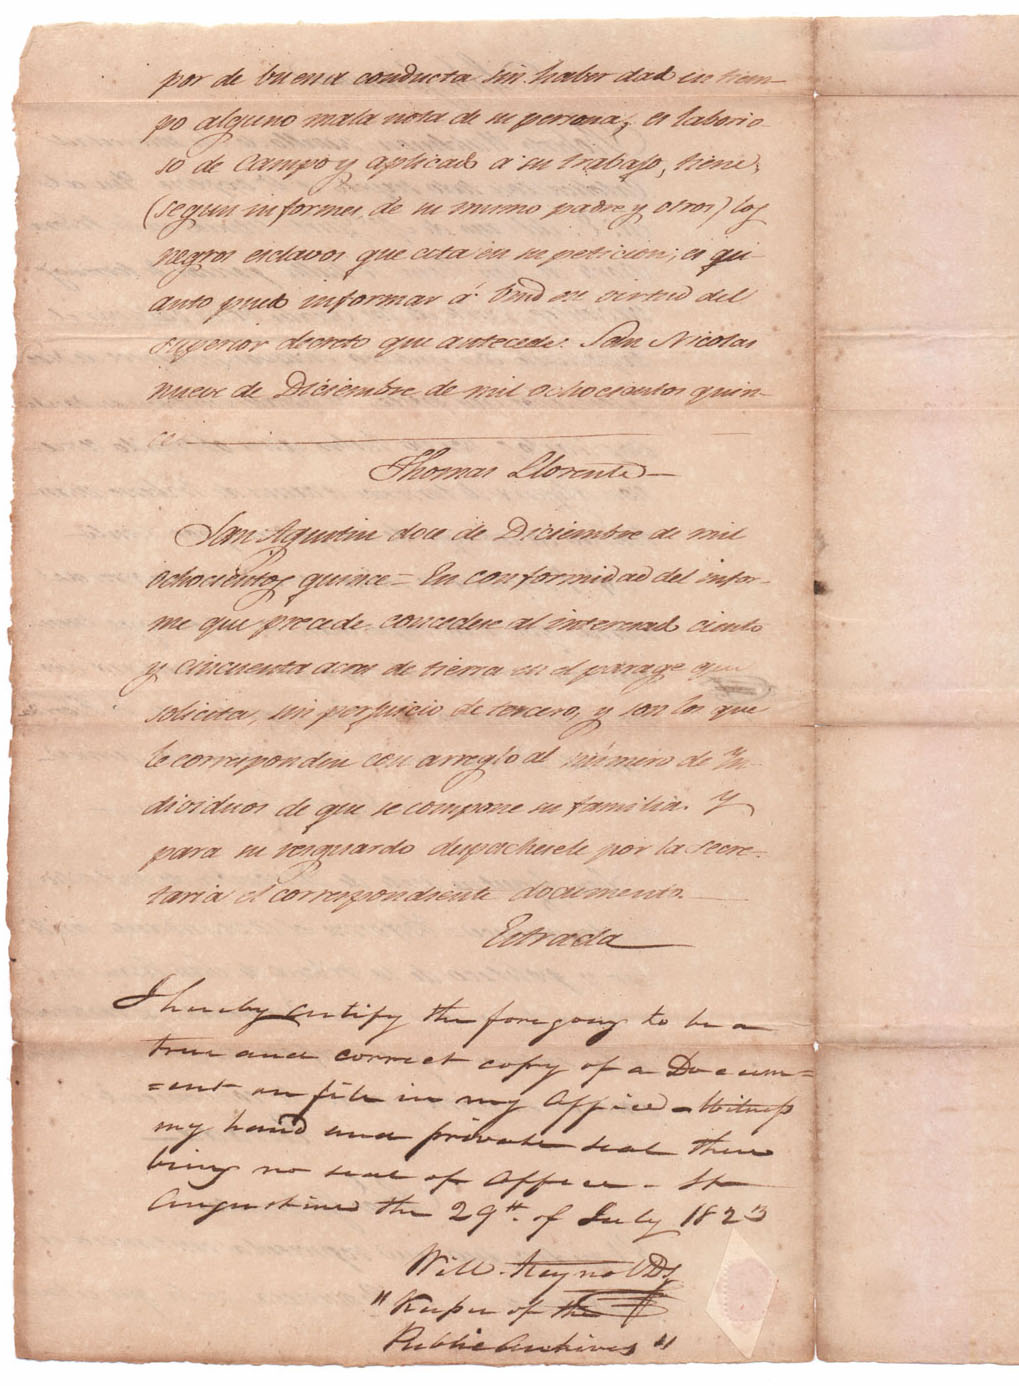 por de buena conducta sin haber dado en tiem-
po alguno mala nota de su persona, es laborio-
so de campo y aplicado á su trabajo, tiene,
(segun informes de su mismo padre y otros) los
negros esclavos que cita en su peticion; es qu-
anto puedo informar á Vmd en virtud del
superior decreto que antecede. San Nicolas
nueve de Diciembre de mil ochocientos quin-
ce
Thomas Llorente
San Agustin doce de Diciembre de mil
ochocientos quince = En conformidad del infor-
me que precede concedese al interesado ciento
y cincuenta acres de tierra en el parage que
solicita, sin perjuicio de tercero, y son los que
le corresponden con arreglo al número de Yn-
dividuos de que se compone su familia. Y
para su resguardo despachesele por la secre-
taria el correspondiente documento.
Estrada
I hereby certify the foregoing to be a
true and correct copy of a Docum=
=ent on file in my office - Witness
my hand and private seal there
being no seal of office - St
Augustine the 29th. of July 1823
Will. Reynolds
"Keeper of the
Public Archives"